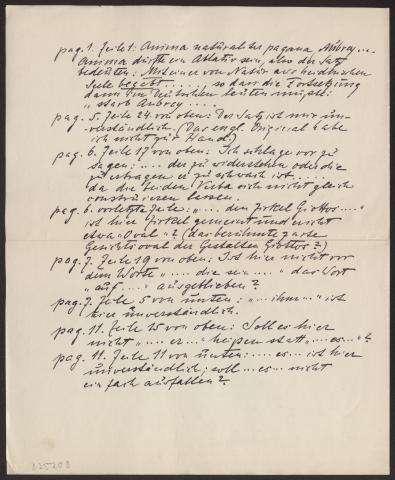 pag. 1. Zeile 1: Anima naturaliter pagana Aubrey ...
Anima dürfte ein Ablativ sein, also der Satz
bedeuten: Mit einer von Natur aus heidnischen
Seele begabt ....., so dass die Fortsetzung
dann im Deutschen lauten müsste:
" starb Aubrey ....
pag. 5. Zeile 24 von oben: Der Satz ist mir un-
verständlich. (Das engl. Original habe
ich nicht zur Hand.)
pag. 6. Zeile 17 von oben: Ich schlage vor zu
sagen: .... der zu widerstehen oder die
zu ertragen er zu schwach ist ....
da die beiden Verba sich nicht gleich
construieren lassen.
pag. 6. vorletzte Zeile: "..... den Zirkel Giottos ...."
ist hier Zirkel gemeint und nicht
etwa "Oval"? (das berühmte zarte
Gesichtsoval der Gestalten Giottos?)
pag. 7. Zeile 19 von oben: Ist hier nicht vor
dem Worte ".... die sein ...." das Wort
"auf ...." ausgeblieben?
pag. 7. Zeile 5 von unten: "... ihm ..." ist
hier unverständlich.
pag. 11. Zeile 15 von oben: Soll es hier
nicht ".... er ..." heißen statt "... es ..."?
pag. 11. Zeile 11 von unten: .... es ... ist hier
unverständlich; soll ... es ... nicht
einfach ausfallen?